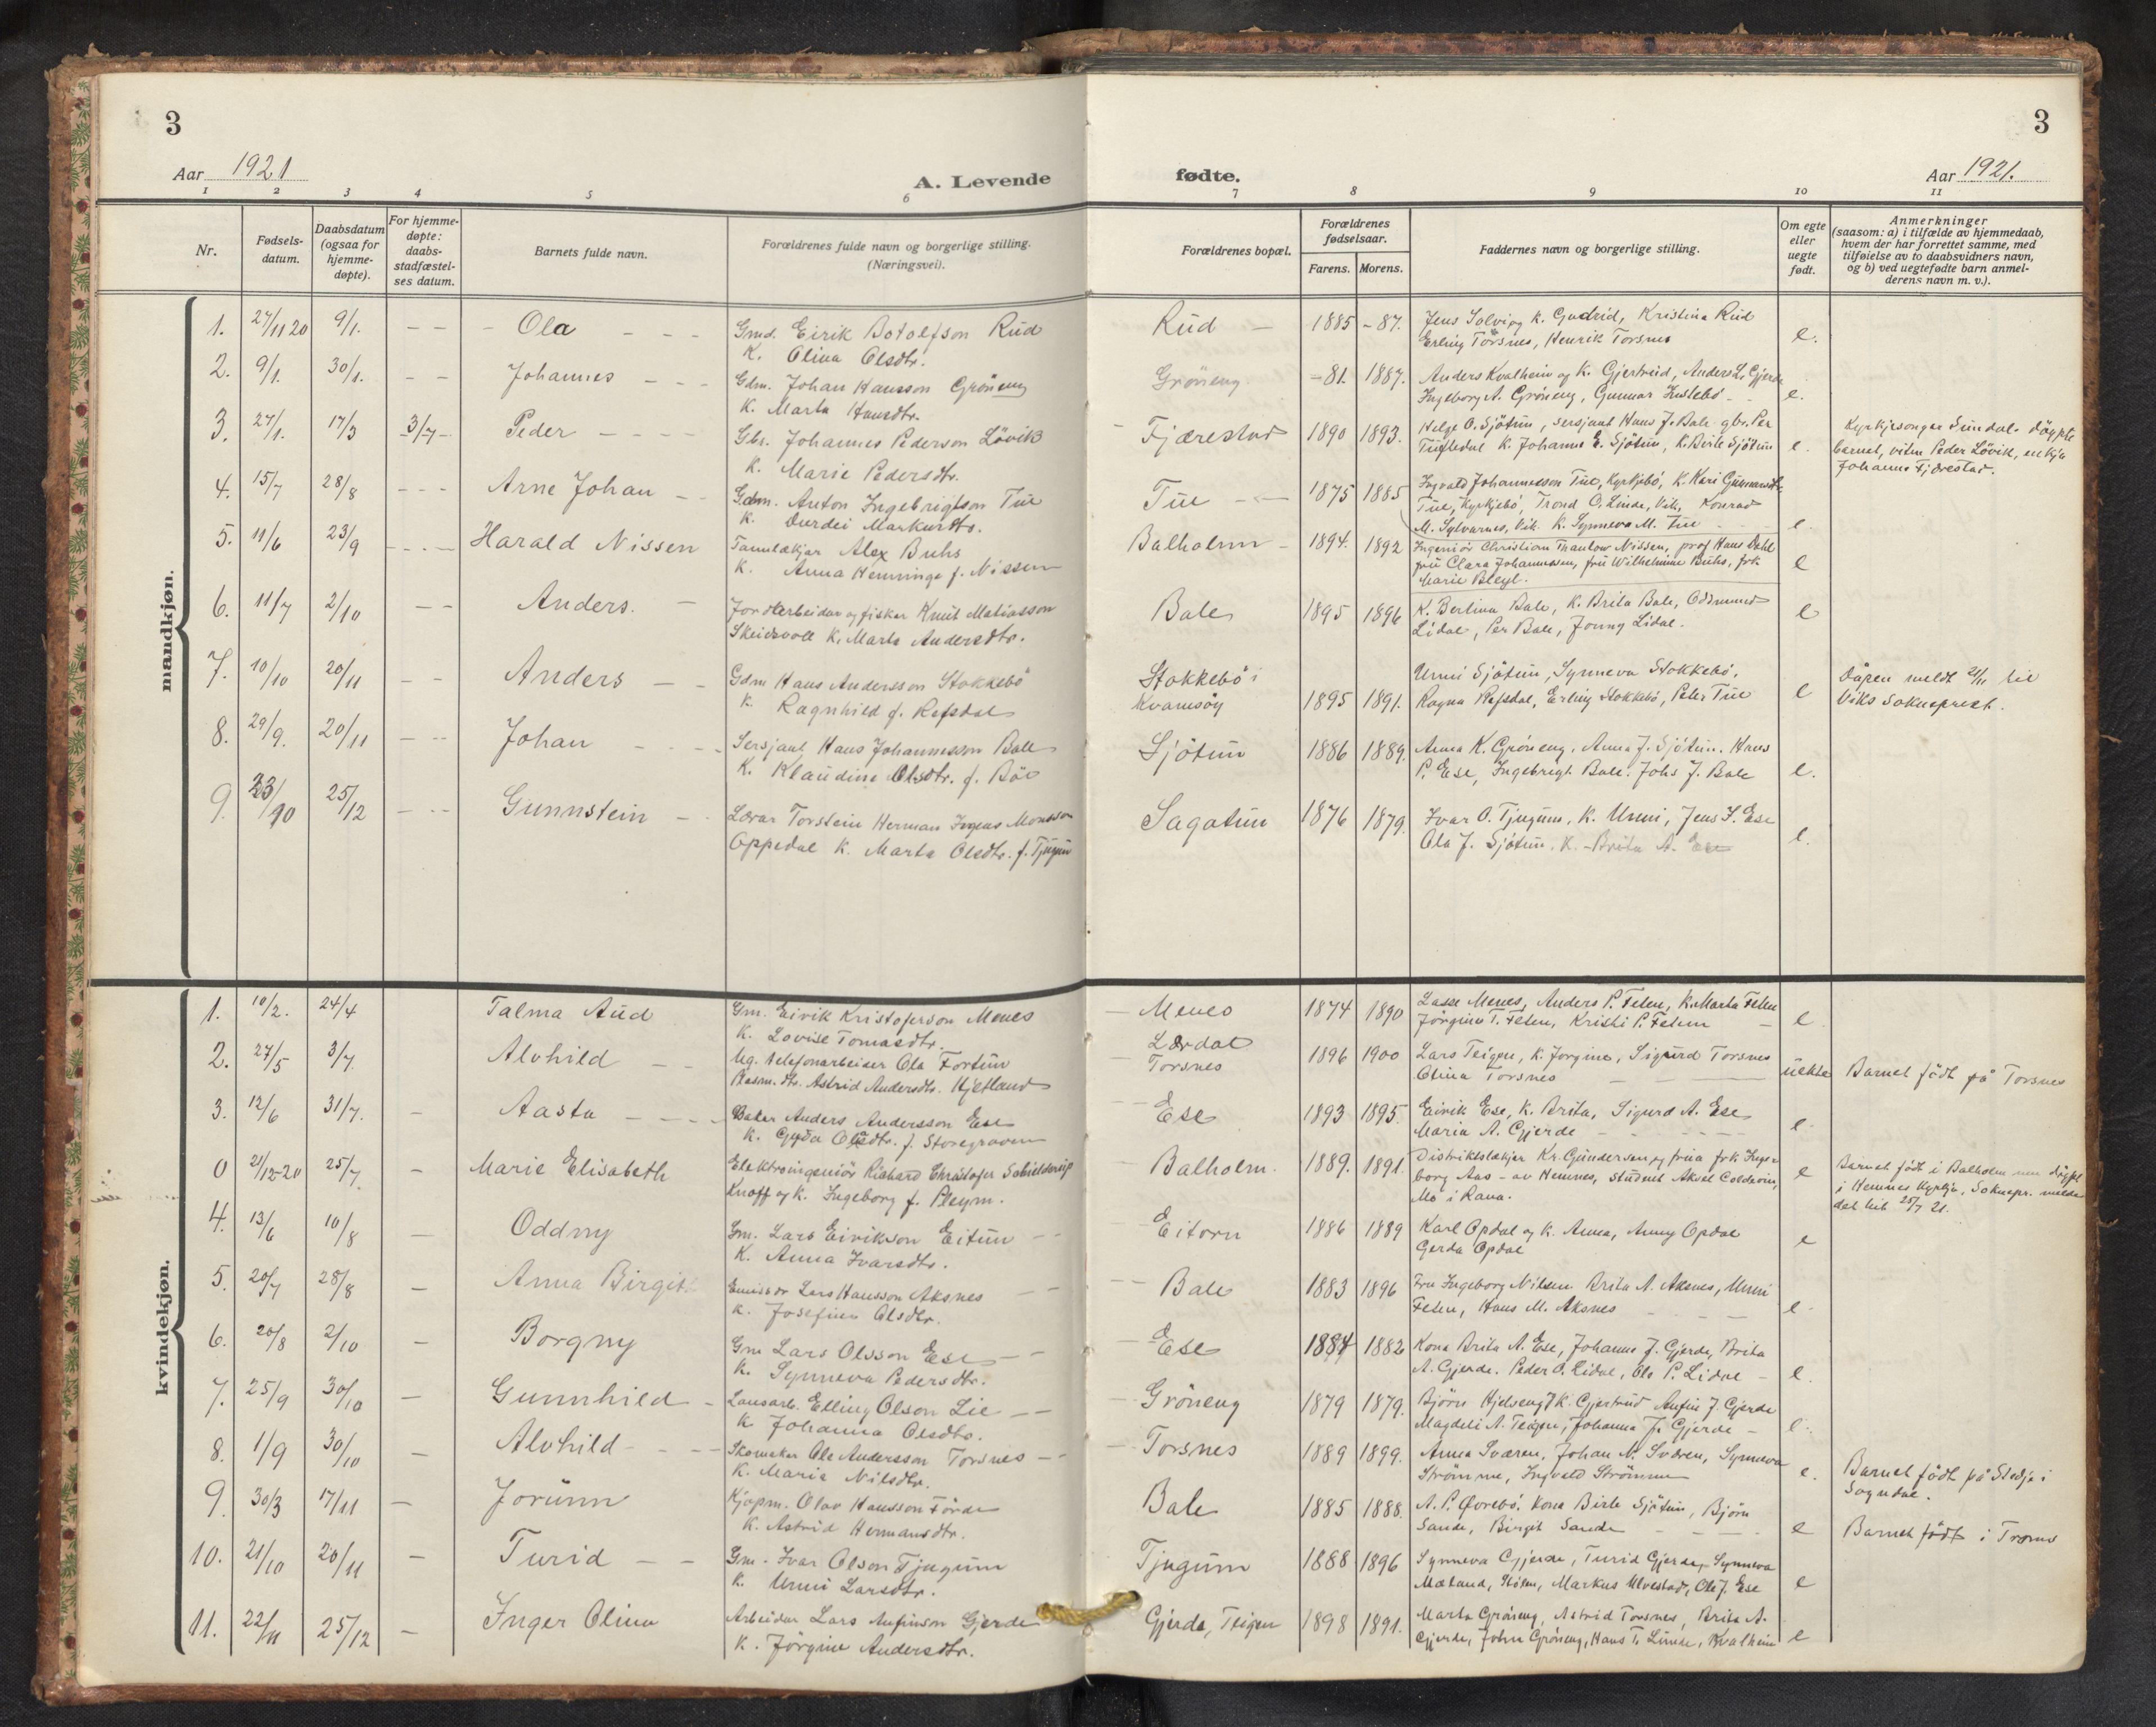 3
3
Aar 1921
A. Levende
fødte.
Aar 1921.
1 2 3 4 5 6 7 8 9 10 11
Nr.
Fødsels-
datum.
Daabsdatum
(ogsaa for
hjemme-
døpte).
For hjemme-
døpte:
daabs-
stadfæstel-
ses datum.
Barnets fulde navn.
Forældrenes fulde navn og borgerlige stilling.
(Næringsvei).
Forældrenes bopæl.
Forældrenes
fødselsaar.
Farens. Morens.
Faddernes navn og borgerlige stilling.
Om egte
eller
uegte
født.
Anmerkninger
(saasom: a) i tilfælde av hjemmedaab,
hvem der har forrettet samme, med
tilføielse av to daabsvidners navn,
og b) ved uegtefødte barn anmel-
derens navn m. v.).
mandkjøn.
1. 27/11 20 9/1. – – – Ola – – –
Gmd. Eirik Botolfson Rud
K. Olina Olsdtr.
Rud – 1885 – 87.
Jens Solvi og k. Gudrid, Kristina Rud
Erling Torsnes, Henrik Torsnes
e.
2. 9/1. 30/1. – – Johannes – – –
Gdm. Johan Hansson Gröneng
K. Marta Hansdtr.
Gröneng – 81. 1887.
Anders Kvalheim og K. Gjertrud, Anders L. Gjerde
Ingeborg A. Gröneng, Gunnar
e.
3. 27/1. 17/3 3/7 – Peder – – – –
Gbr. Johannes Pederson Lövik
K. Marie Pedersdtr.
Fjærestad 1890 1893.
Helge O. Sjötun, sersjant Hans J. Bale gbr. Per
Tuftedal K. Johanne E. Sjötun, K. Birte Sjötun
e
Kyrkjesongar Sundal döypte
barnet, vitne Peder Lövik, enkja
Johanne Fjærestad.
4. 15/7 28/8 – – – Arne Johan – –
Gdm. Anton Ingebrigtson Tue
K. Durdei Markusdtr.
Tue – – 1875 1885
Ingvald Johannesson Tue, Kyrkjebö, K. Kari Gunnarsdtr.
Tue, Kyrkjebö, Trond O. Linde, Vik, Konrad
M. Sylvarnes, Vik. K. Synneva M. Tue
e.
5. 11/6 23/9 – – – Harald Nissen
Tannlækjar Alex Buhs
K. Anna Henninge f. Nissen
Balholm – 1894. 1892
Ingeniör Christian Thaulow Nissen, prof. Hans Dahl
fru Clara Johannessen, fru Wilhelmine Buhs, frk.
Marie Bleyl.
e
6. 11/7 2/10 – – Anders. –
Jordarbeidar og fisker Knut Matiasson
Skeidsvoll K. Marta Andersdtr.
Bale 1895 1896
K. Berlina Bale, K. Brita Bale, Oddmund
Lidal, Per Bale, Jorung Lidal.
e
7. 10/10 20/11 – – Anders – –
Gdm Hans Andersson Stokkebö
K. Ragnhild f. Refsdal
Stokkebö i
Kvamsöy 1895 1891.
Unni Sjötun, Synneva Stokkebö,
Ragna Refsdal, Erling Stokkebö, Peter Tue
e
Dåpen meldt 21/11 til
Viks Sokneprest.
8. 29/9. 20/11 – – Johan – – –
Sersjant Hans Johannesson Bale
K. Klaudine Olsdtr. f. Böe
Sjötun 1886 1889.
Anna K. Gröneng, Anna J. Sjötun. Hans
P. Ese, Ingebrigt Bale. Johs J. Bale
e.
9. 23/10 25/12 – – – Gunnstein – –
Lærar Torstein Herman Ingeus Monsson
Oppedal K. Marta Olsdtr. f. Tjugum
Sagatun 1876 1879.
Ivar O. Tjugum, K. Unni, Jens S. Ese
Ola J. Sjötun. K. Brita A. Ese
e.
kvindekjøn.
1. 10/2. 24/4 Talma Aud
Gm. Eivik Kristoferson Menes
K. Lovise Tomasdtr.
– Menes 1874 1890
Lasse Menes, Anders P. Feten, K. Marta Feten
Jörgine T. Feten, Kristi P. Feten
e
2. 27/5 3/7. Alvhild – –
Ug. telefonarbeider Ola Fortun
Rasm. dtr. Astrid Andersdtr. Hjetland
Lærdal
Torsnes 1896 1900
Lars Teigen, K. Jorgine, Sigurd Torsnes
Olina Torsnes
uekte
Barnet födt på Torsnes
3. 12/6 31/7. – Aasta – – – –
Baker Anders Andersson Ese
K. Gyda Olsdtr. f. Storegraven
Ese 1893 1895.
Eivik Ese, K. Brita, Sigurd A. Ese
Maria A. Gjerde
e
0 21/12-20 25/7. – Marie Elisabeth
Elektroingeniör Richard Christofer
Knoff og K. Ingeborg f. Pleym.
– Balholm. 1889. 1891.
Distriktslækjar Kr. Gundersen og fruia frk. Inge-
borg Aas – av Hemnes, Student Aksel Coldevin,
Mo i Rana.
e
Barnet födt i Balholm men döypt
i Hemnes Kyrkja, Soknepr. melde
det hit 25/7 21.
4. 13/6 10/8 – Oddny
Gm. Lars Eivikson Eitun – –
K. Anna Ivarsdtr.
– Eitorn 1886 1889
Karl Opdal og K. Anna, Anny Opdal
Gerda Opdal
e
5. 20/7 28/8 – Anna Birgit
Emissær Lars Hansson Aksnes – –
K. Josefine Olsdtr.
– – Bale 1883 1896
Fru Ingeborg Nilsen Brita A. Aksnes, Unni
Feten, Hans M. Aksnes
e
6. 20/8 2/10 – Borgny
Gm Lars Olsson Ese – –
K. Synneva Pedersdtr.
– Ese 1884 1882
Kona Brita A. Ese, Johanne J. Gjerde, Brita
A. Gjerde. Peder O. Lidal, Ole P. Lidal –
e.
7. 25/9 30/10 – Gunnhild –
Lausarb. Elling Olson Lie – –
K Johanna Olsdtr.
– Gröneng 1879 1879.
Björn Hjelseng, K. Gjertrud Anfin J. Gjerde
Magdeli A. Teigen, Johanna J. Gjerde –
e.
8. 1/9 30/10 – Alvhild – – –
Skomakar Ole Andersson Torsnes – –
K. Maria Nilsdtr.
– Torsnes 1889 1899.
Anna Sværen, Johan N. Sværen, Synneva
Strömme, Ingvald Strömme
e.
Barnet födt på Stedje i
Sogndal.
9. 30/3 17/11 – Jorunn
Kjøpm. Olav Hansson Förde
K. Astrid Hermansdtr.
Bale 1885 1888.
A. P. Övrebö. Kona Birte Sjötun, Björn
Sande, Birgit Sande
e
Barnet födt i Troms
10. 21/10 20/11 – Turid – –
Gm. Ivar Olson Tjugum
K. Unni Larsdtr.
Tjugum 1888 1896
Synneva Gjerde, Turid Gjerde, Synneva
Mæland, Markus Ulvestad, Ole J. Ese
e
11. 22/11 25/12 – Inger Olina
Arbeidar Lars Anfinson Gjerde
K. Jörgine Andersdtr.
Gjerde, Teigen 1898 1891.
Marta Gröneng, Astrid Torsnes, Brita A.
Gjerde, Johan Gröneng, Hans T. Linde, Kvalheim
e